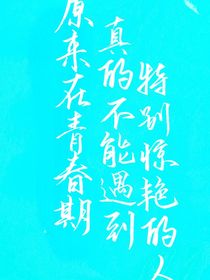 原来在青春期
真的不能遇到
特别惊艳的人